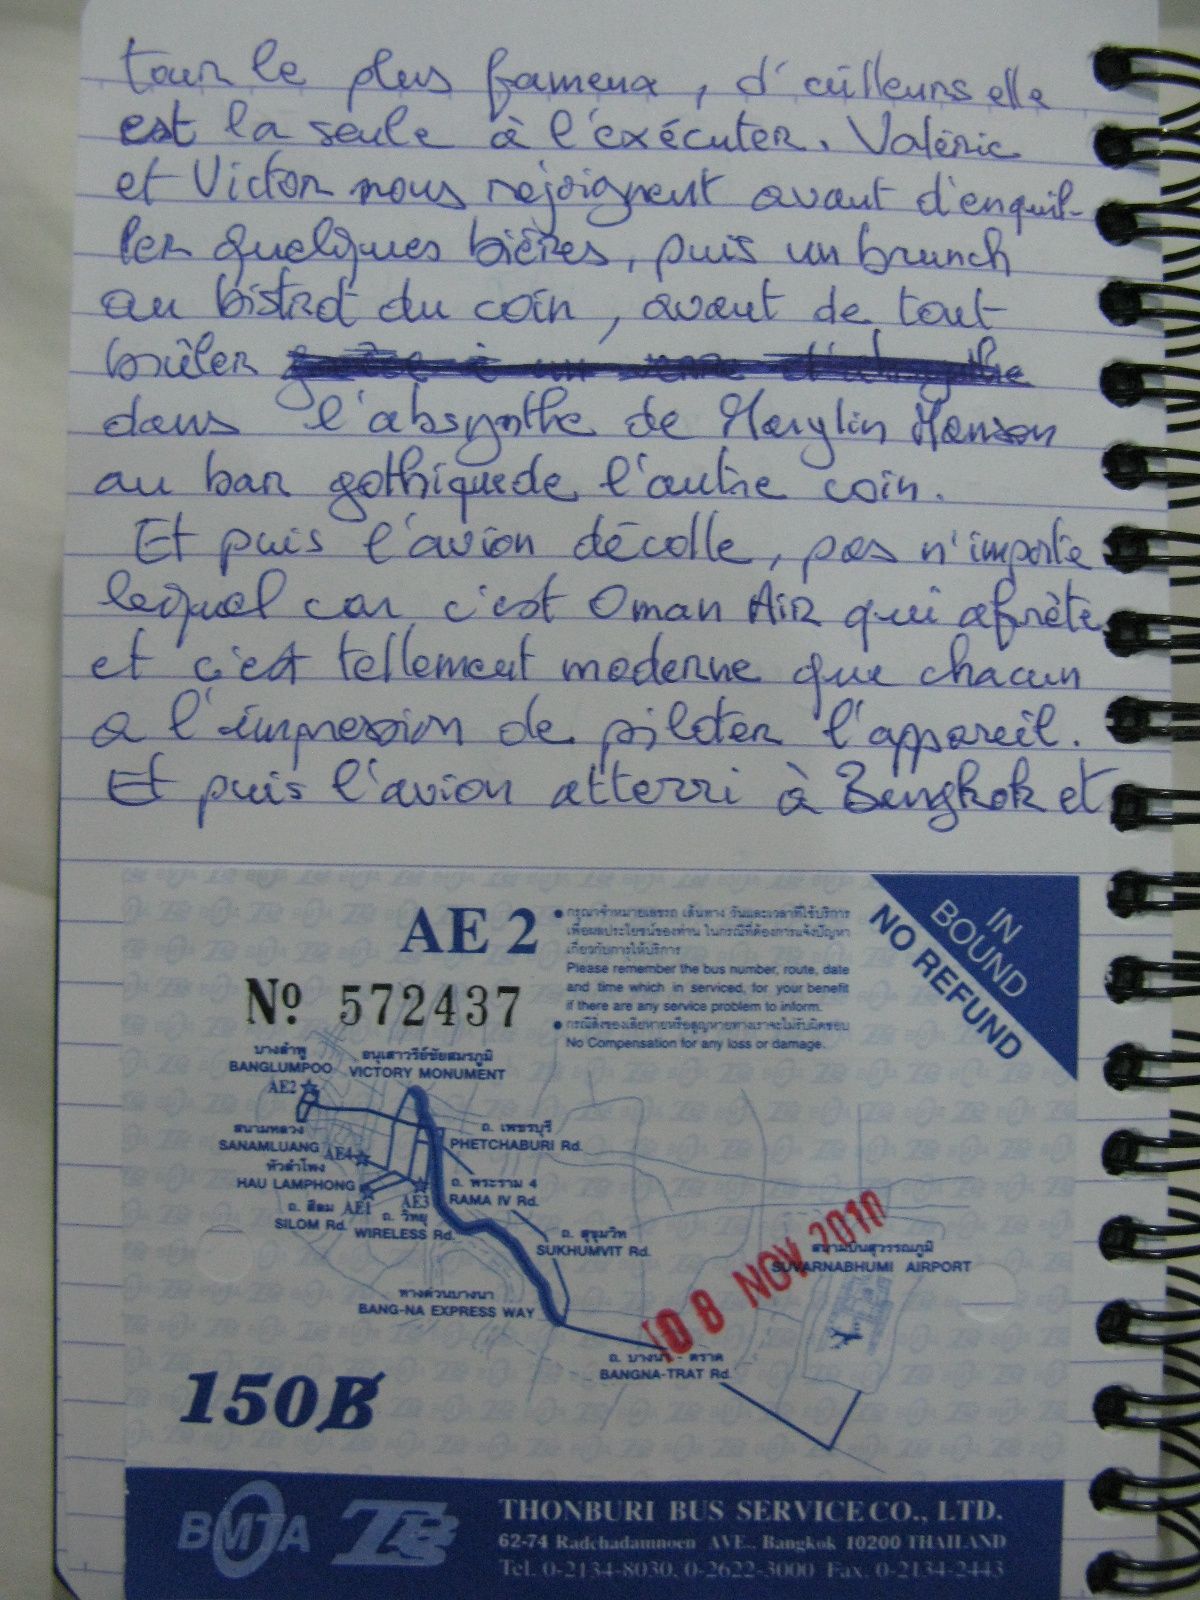 tour le plus fameux, d'ailleurs elle
est la seule à l'exécuter. Valérie
et Victor nous rejoignent avant d'enquil-
ler quelques bières, puis un brunch
au bistrot du coin, avant de tout
brûler
dans l'absynthe de Marylin Manson
au bar gothique de l'autre coin.
Et puis l'avion décolle, pas n'importe
lequel car c'est Oman Air qui afrète
et c'est tellement moderne que chacun
a l'impression de piloter l'appareil.
Et puis l'avion atterri à Bangkok et
AE 2
กรุณาจำหมายเลขรถ เส้นทาง วันและเวลาที่ใช้บริการ
เพื่อผลประโยชน์ของท่าน ในกรณีที่ต้องการแจ้งปัญหา
เกี่ยวกับการให้บริการ
Please remember the bus number, route, date
and time which in serviced, for your benefit
if there are any service problem to inform.
กรณีสิ่งของเสียหายหรือสูญหายทางเราจะไม่รับผิดชอบ
No Compensation for any loss or damage.
IN
BOUND
NO REFUND
No. 572437
บางลำพู
BANGLUMPOO
AE2
อนุเสาวรีย์ชัยสมรภูมิ
VICTORY MONUMENT
สนามหลวง
SANAMLUANG
AE4
หัวลำโพง
HAU LAMPHONG
AE1
AE3
ถ. สีลม
SILOM Rd.
ถ. วิทยุ
WIRELESS Rd.
ถ. เพชรบุรี
PHETCHABURI Rd.
ถ. พระราม 4
RAMA IV Rd.
ถ. สุขุมวิท
SUKHUMVIT Rd.
ทางด่วนบางนา
BANG-NA EXPRESS WAY
08 NOV 2010
สนามบินสุวรรณภูมิ
SUVARNABHUMI AIRPORT
ถ. บางนา - ตราด
BANGNA-TRAT Rd.
150฿
BMTA TB
THONBURI BUS SERVICE CO., LTD.
62-74 Radchadamnoen AVE., Bangkok 10200 THAILAND
Tel. 0-2134-8030, 0-2622-3000 Fax. 0-2134-2443